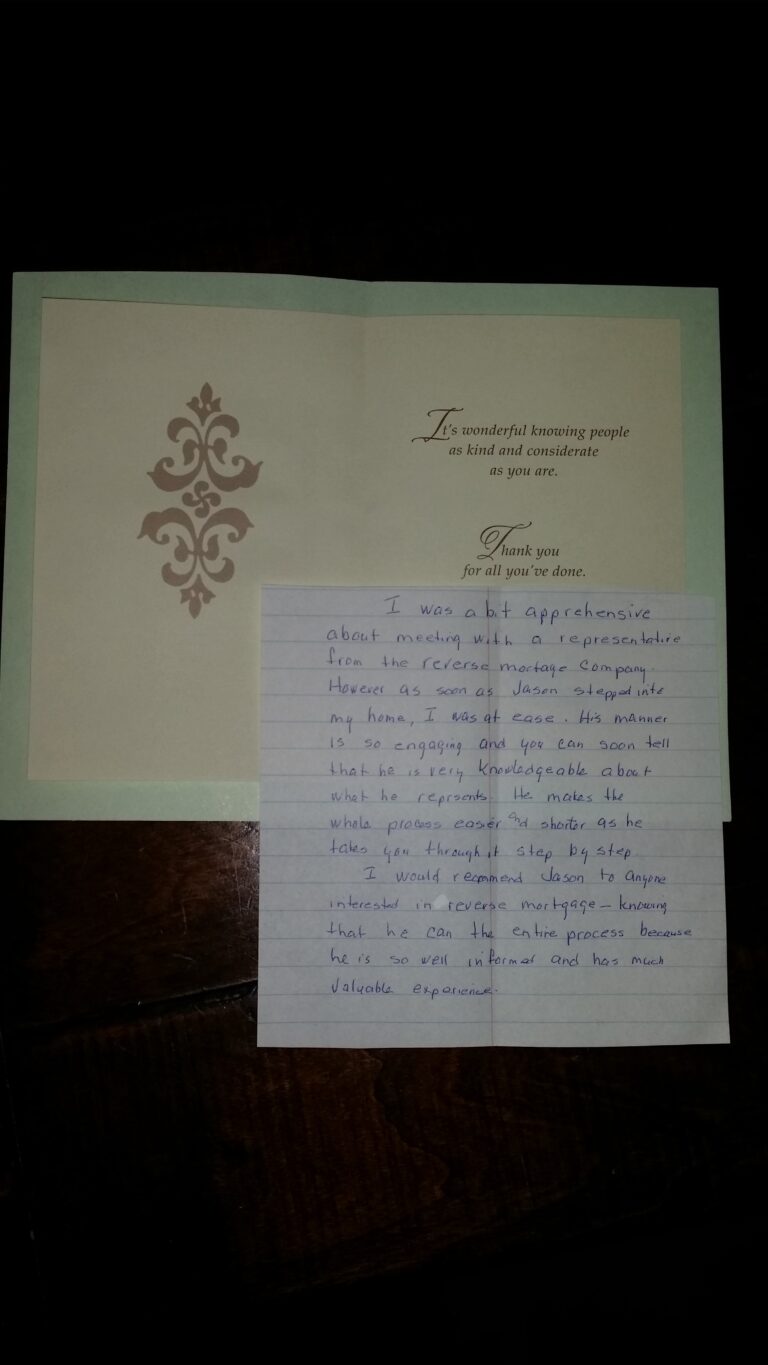 It's wonderful knowing people
as kind and considerate
as you are.
Thank you
for all you've done.
I was a bit apprehensive
about meeting with a representative
from the reverse mortage company.
However as soon as Jason stepped into
my home, I was at ease. His manner
is so engaging and you can soon tell
that he is very knowledgeable about
what he reprsents. He makes the
whole process easier and shorter as he
takes you through it step by step
I would recommend Jason to anyone
interested in reverse mortgage – knowing
that he can the entire process because
he is so well informed and has much
valuable experience.